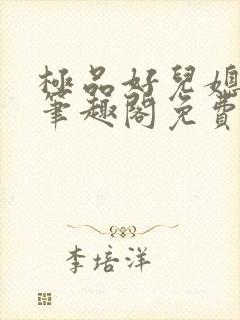 極品好兒媳
筆趣閣免費
李培洋